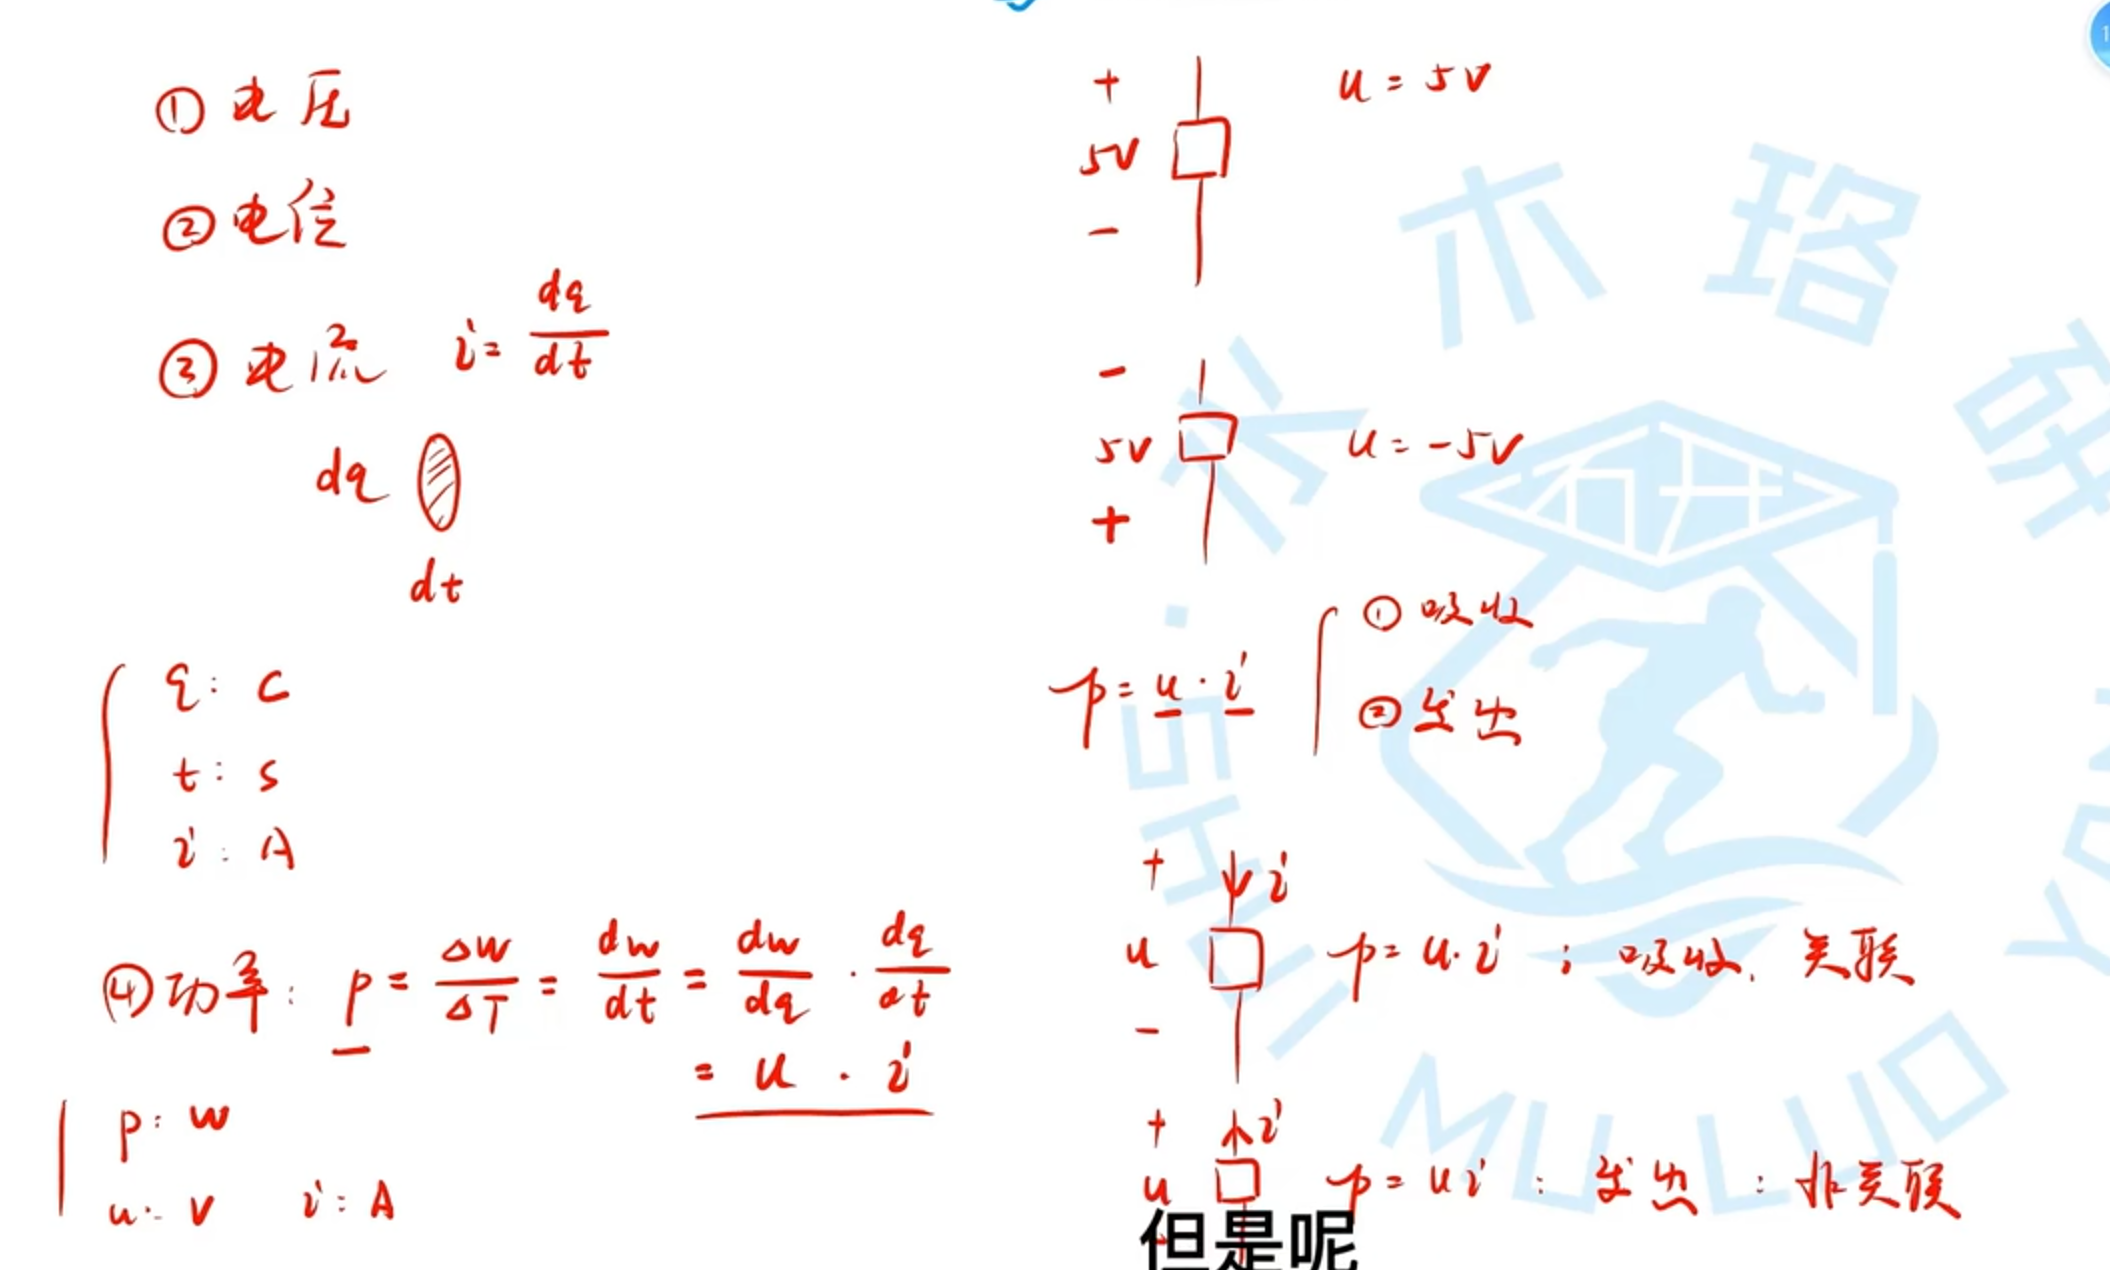 ① 电压
② 电位
③ 电流 i = dq/dt
dq
dt
q: C
t: s
i: A
④ 功率: p = ΔW/ΔT = dw/dt = dw/dq · dq/dt
= u · i
p: W
u: V i: A
+ u = 5V
5V
-
-
5V u = -5V
+
① 吸收
p = u · i
② 发出
+ i
u p = u·i ; 吸收. 关联
-
+ i
u p = ui : 发出 : 非关联
但是呢
木 珞 研
SHUI MULUO Y